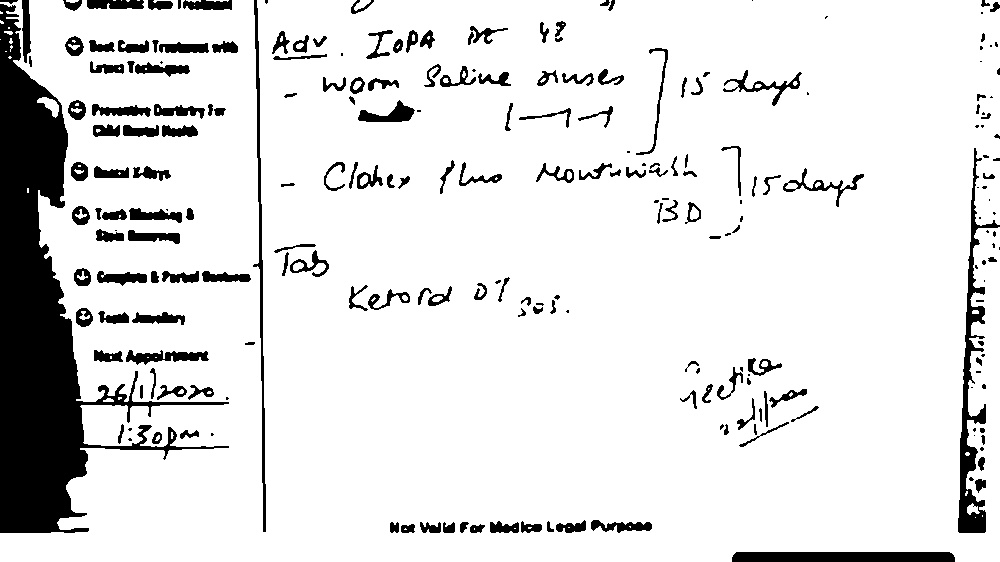 Root Canal Treatment with
Latest Techniques
Preventive Dentistry For
Child Dental Health
Dental X-Rays
Tooth Bleaching &
Stain Removing
Complete & Partial Dentures
Tooth Jewellery
Next Appointment
26/1/2020.
1:30pm.
Adv. IOPA 48
- Warm Saline rinses ] 15 days.
1-1-1
- Clohex Plus Mouthwash ] 15 days
BD
Tab
Ketorol DT SOS.
Geetika
22/1/2020
Not Valid For Medico Legal Purpose